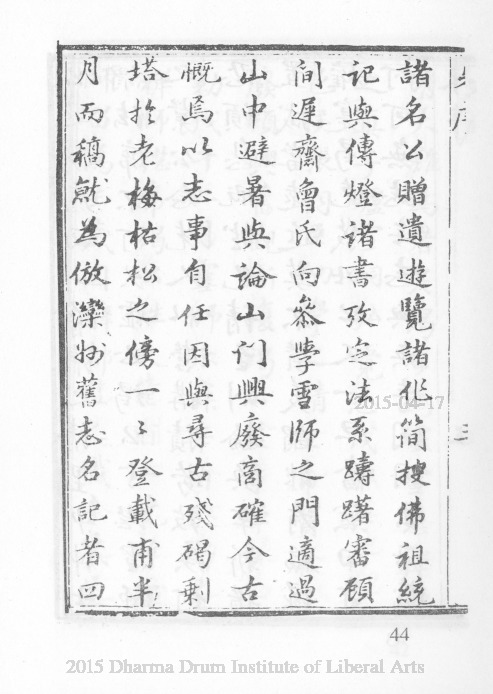 諸名公贈遺遊覽諸作簡搜佛祖統
記與傳燈諸書攷定法系躊躇審顧
間遲齋曾氏向叅學雪師之門適過
山中避暑與論山门興廢商確今古
慨焉以志事自任因與尋古殘碣剩
塔於老梅枯松之傍一〻登載甫半
月而稿就為倣灤州舊志名記者四
2015-04-17
44
2015 Dharma Drum Institute of Liberal Arts